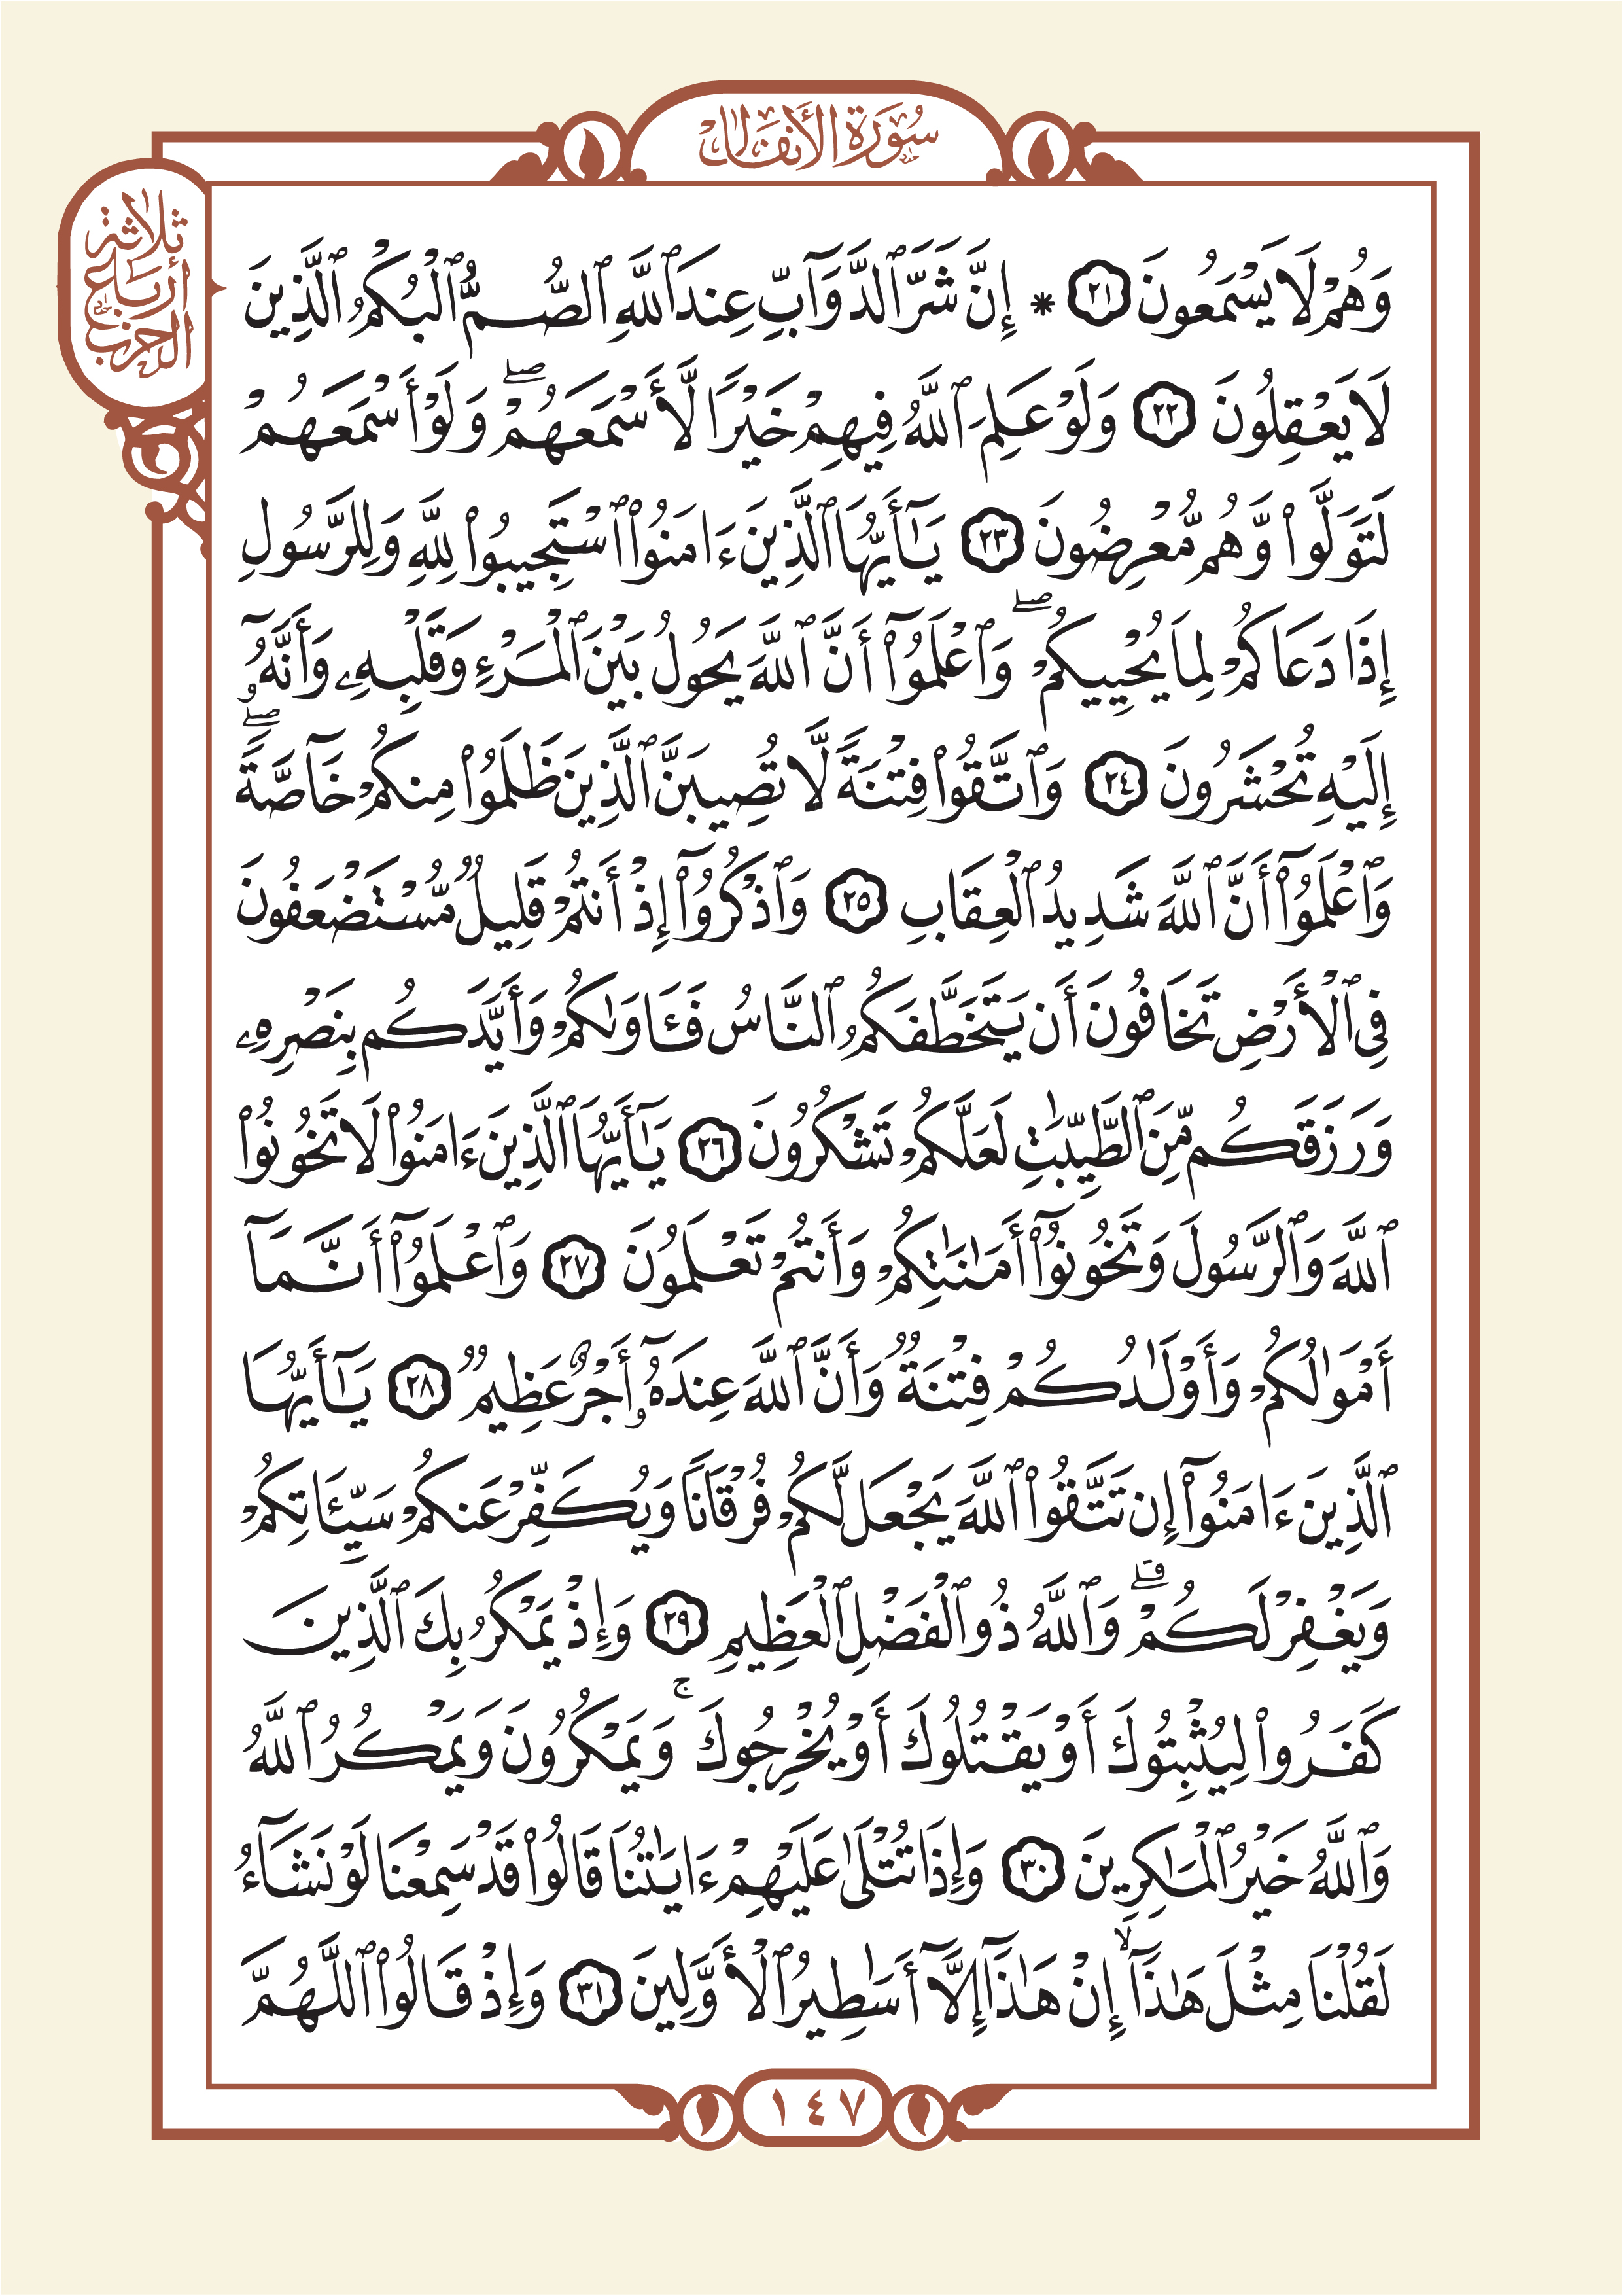 سُورَةُ الأَنفَالِ
ثلاثة
أرباع
الحزب
وَهُمْ لَا يَسْمَعُونَ ٢١ * إِنَّ شَرَّ ٱلدَّوَآبِّ عِندَ ٱللَّهِ ٱلصُّمُّ ٱلْبُكْمُ ٱلَّذِينَ
لَا يَعْقِلُونَ ٢٢ وَلَوْ عَلِمَ ٱللَّهُ فِيهِمْ خَيْرًا لَّأَسْمَعَهُمْۖ وَلَوْ أَسْمَعَهُمْ
لَتَوَلَّوا۟ وَّهُم مُّعْرِضُونَ ٢٣ يَـٰٓأَيُّهَا ٱلَّذِينَ ءَامَنُوا۟ ٱسْتَجِيبُوا۟ لِلَّهِ وَلِلرَّسُولِ
إِذَا دَعَاكُمْ لِمَا يُحْيِيكُمْۖ وَٱعْلَمُوٓا۟ أَنَّ ٱللَّهَ يَحُولُ بَيْنَ ٱلْمَرْءِ وَقَلْبِهِۦ وَأَنَّهُۥٓ
إِلَيْهِ تُحْشَرُونَ ٢٤ وَٱتَّقُوا۟ فِتْنَةً لَّا تُصِيبَنَّ ٱلَّذِينَ ظَلَمُوا۟ مِنكُمْ خَآصَّةًۖ
وَٱعْلَمُوٓا۟ أَنَّ ٱللَّهَ شَدِيدُ ٱلْعِقَابِ ٢٥ وَٱذْكُرُوٓا۟ إِذْ أَنتُمْ قَلِيلٌ مُّسْتَضْعَفُونَ
فِى ٱلْأَرْضِ تَخَافُونَ أَن يَتَخَطَّفَكُمُ ٱلنَّاسُ فَـَٔاوَىٰكُمْ وَأَيَّدَكُم بِنَصْرِهِۦ
وَرَزَقَكُم مِّنَ ٱلطَّيِّبَـٰتِ لَعَلَّكُمْ تَشْكُرُونَ ٢٦ يَـٰٓأَيُّهَا ٱلَّذِينَ ءَامَنُوا۟ لَا تَخُونُوا۟
ٱللَّهَ وَٱلرَّسُولَ وَتَخُونُوٓا۟ أَمَـٰنَـٰتِكُمْ وَأَنتُمْ تَعْلَمُونَ ٢٧ وَٱعْلَمُوٓا۟ أَنَّمَآ
أَمْوَٰلُكُمْ وَأَوْلَـٰدُكُمْ فِتْنَةٌ وَأَنَّ ٱللَّهَ عِندَهُۥٓ أَجْرٌ عَظِيمٌ ٢٨ يَـٰٓأَيُّهَا
ٱلَّذِينَ ءَامَنُوٓا۟ إِن تَتَّقُوا۟ ٱللَّهَ يَجْعَل لَّكُمْ فُرْقَانًا وَيُكَفِّرْ عَنكُمْ سَيِّـَٔاتِكُمْ
وَيَغْفِرْ لَكُمْۗ وَٱللَّهُ ذُو ٱلْفَضْلِ ٱلْعَظِيمِ ٢٩ وَإِذْ يَمْكُرُ بِكَ ٱلَّذِينَ
كَفَرُوا۟ لِيُثْبِتُوكَ أَوْ يَقْتُلُوكَ أَوْ يُخْرِجُوكَۚ وَيَمْكُرُونَ وَيَمْكُرُ ٱللَّهُ
وَٱللَّهُ خَيْرُ ٱلْمَـٰكِرِينَ ٣٠ وَإِذَا تُتْلَىٰ عَلَيْهِمْ ءَايَـٰتُنَا قَالُوا۟ قَدْ سَمِعْنَا لَوْ نَشَآءُ
لَقُلْنَا مِثْلَ هَـٰذَآۙ إِنْ هَـٰذَآ إِلَّآ أَسَـٰطِيرُ ٱلْأَوَّلِينَ ٣١ وَإِذْ قَالُوا۟ ٱللَّهُمَّ
١٤٧